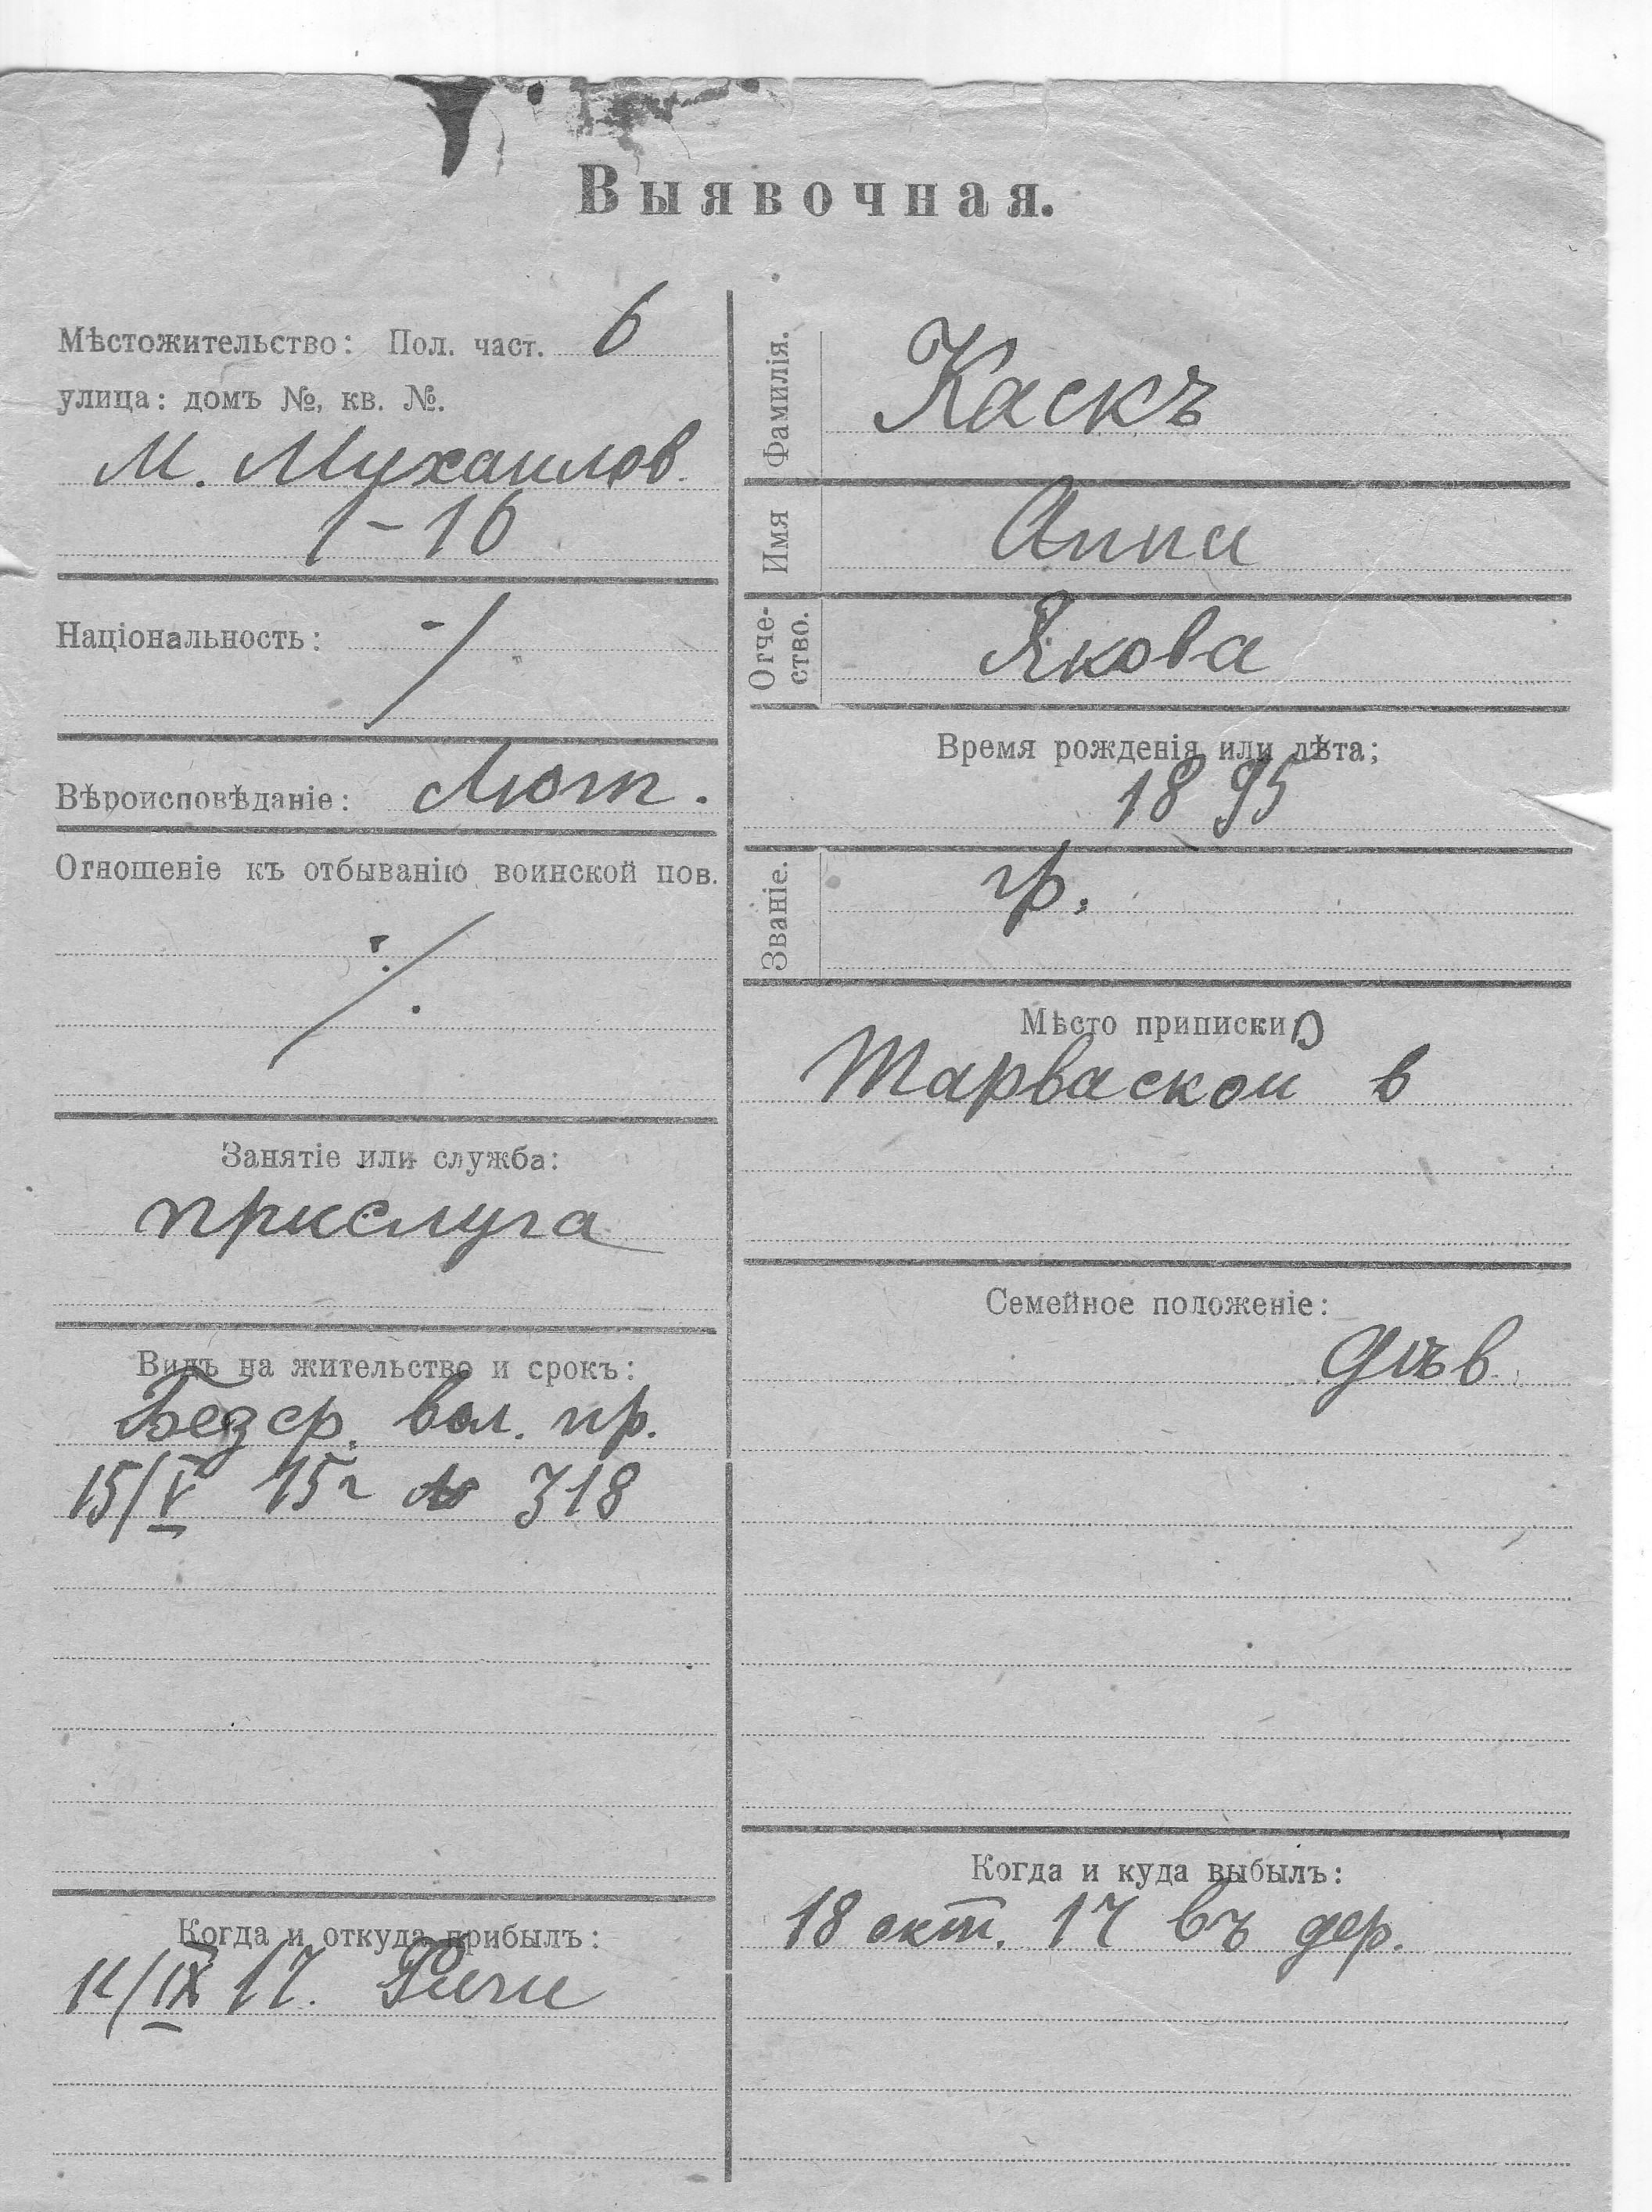 Выявочная.
Мѣстожительство: Пол. част. 6
улица: домъ №, кв. №.
М. Михаилов.
1-16
Національность: -/
Вѣроисповѣданіе: Лют.
Отношеніе къ отбыванію воинской пов.
Занятіе или служба:
прислуга
Видъ на жительство и срокъ:
Безср. вол. пр.
15/V 15 г № 318
Когда и откуда прибылъ:
/IX 17.
Фамилія. Каскъ
Имя Анна
Отче-
ство. Якова
Время рожденія или лѣта;
1895
Званіе. гр.
Мѣсто приписки
Тарваской в
Семейное положеніе:
дѣв.
Когда и куда выбылъ:
18 окт. 17 въ дер.